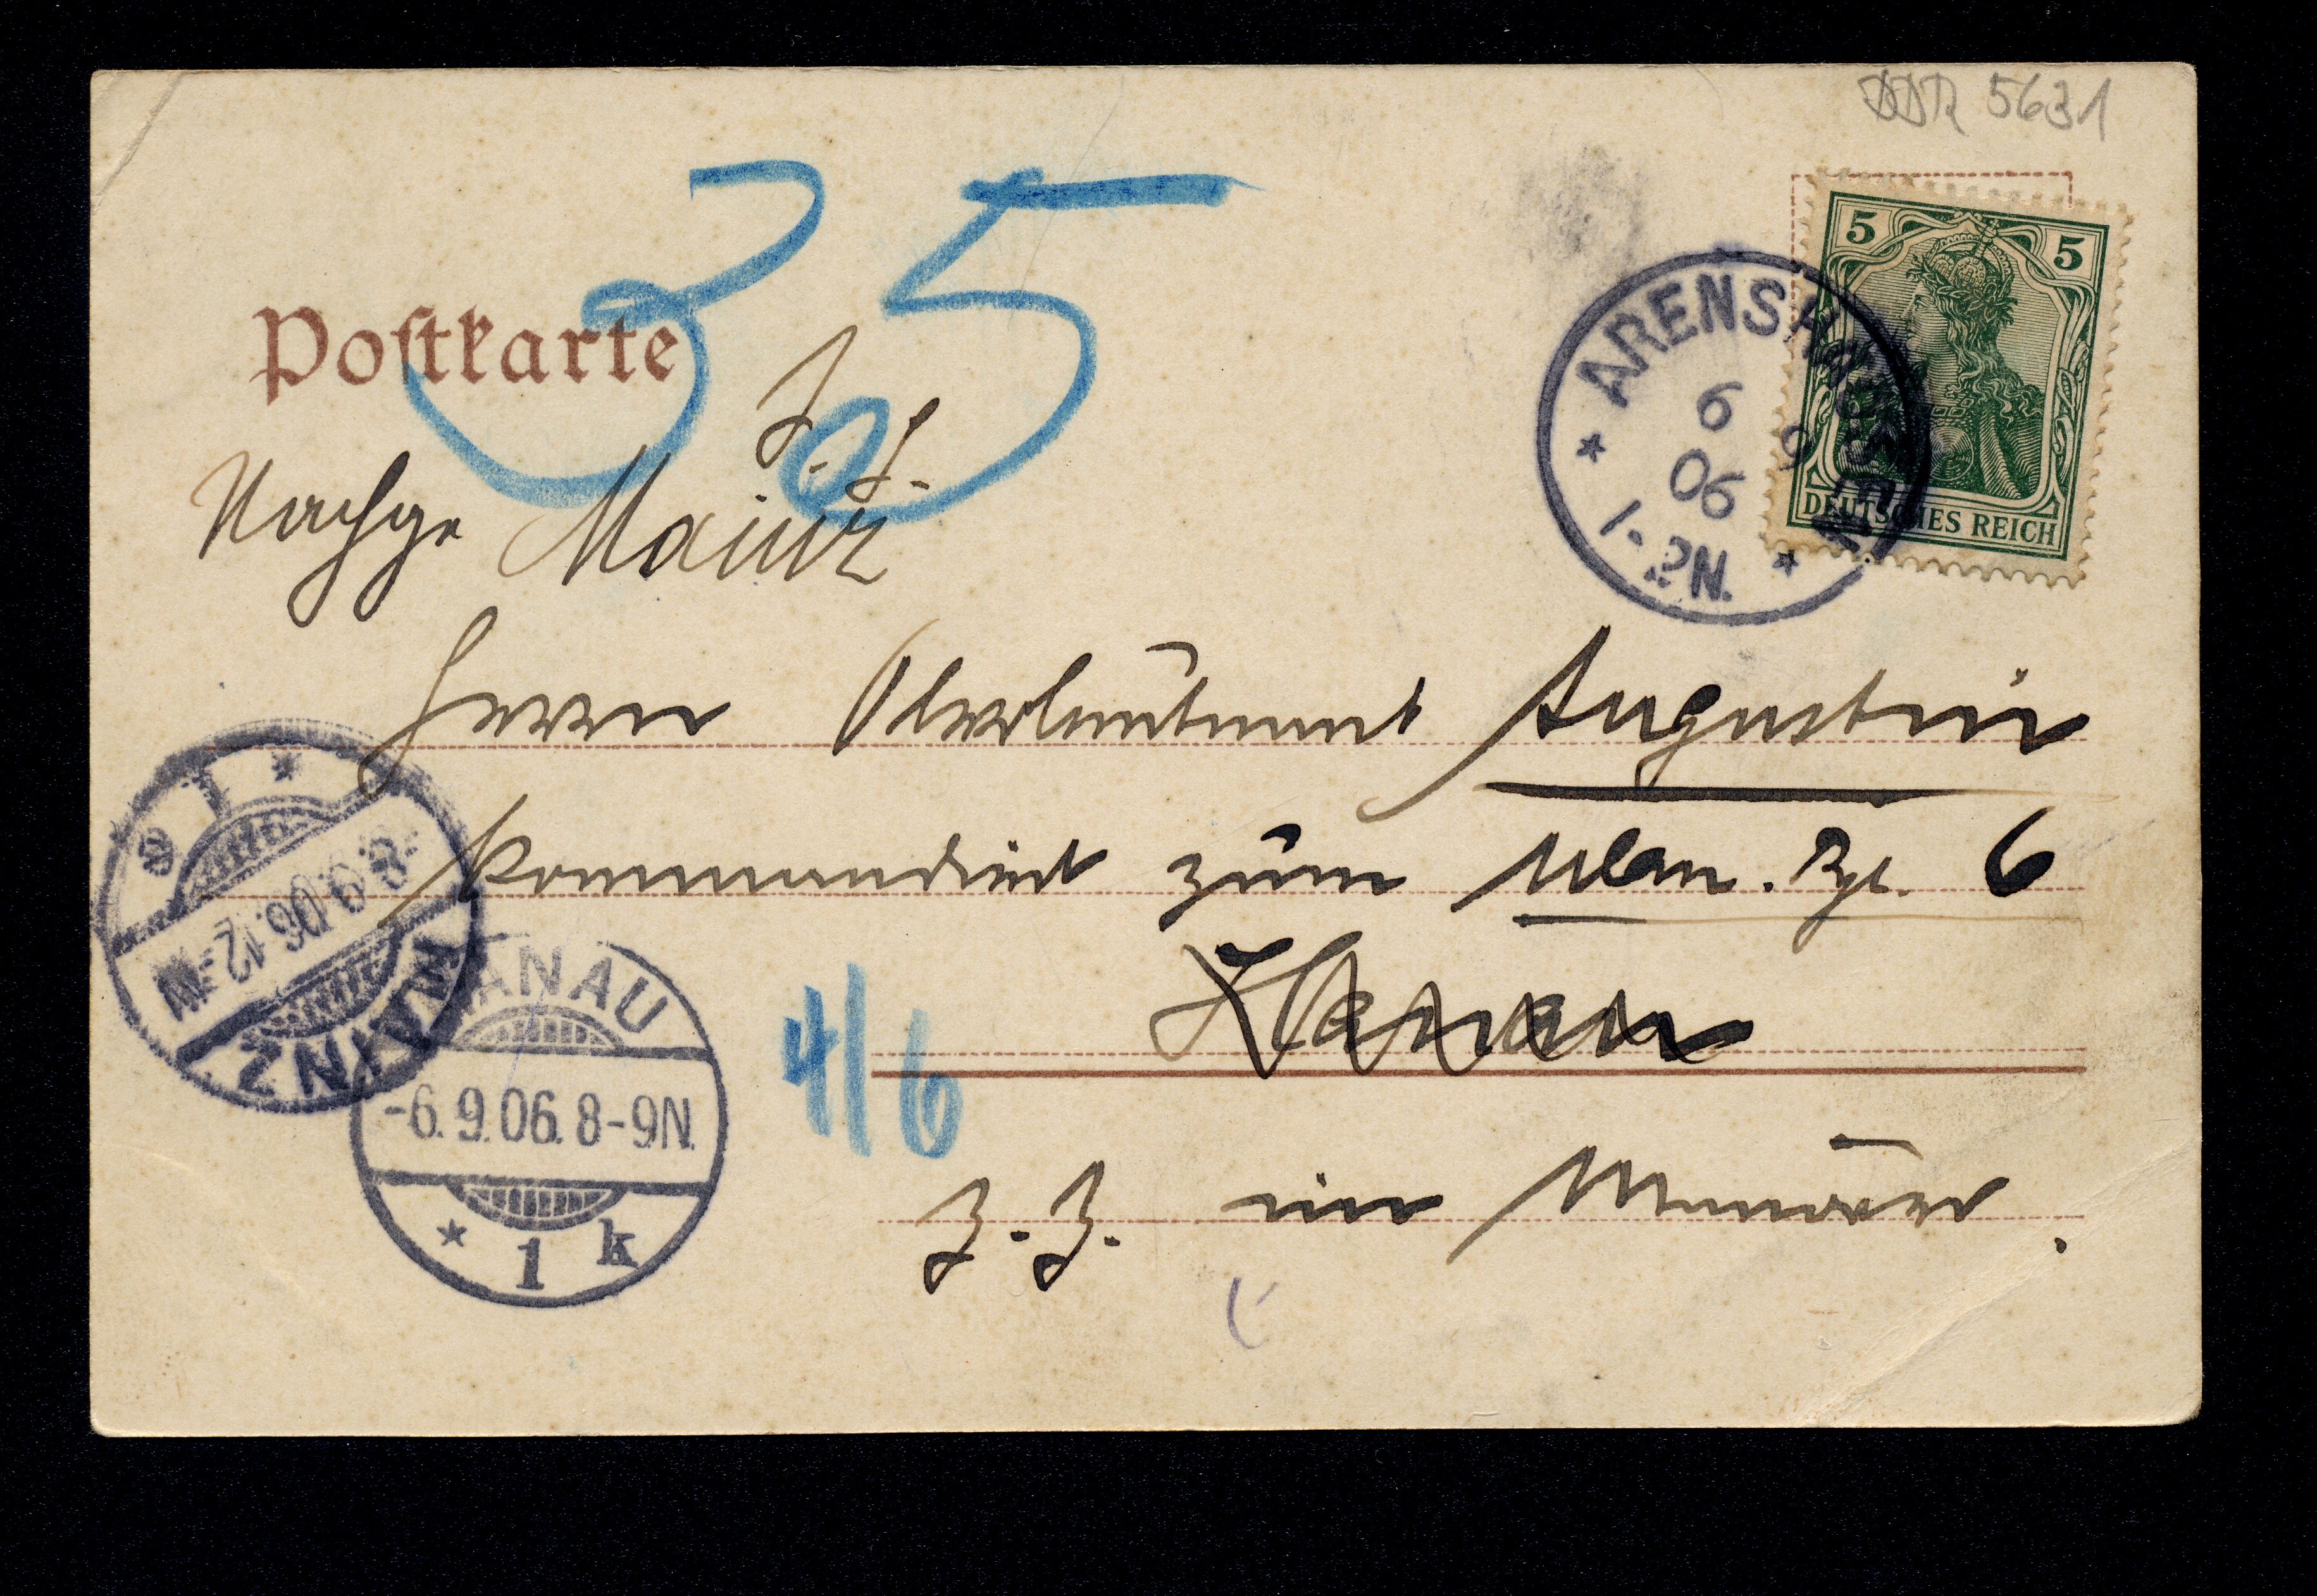 DDR 5631
35
5 5
DEUTSCHES REICH
ARENSHAUSEN
6 9
06
1-2N.
Poſtkarte
Nachge Mainz
Herrn Oberleutnant Augustin
kommandiert zum Ulan. Rgt. 6
Hanau
z. Z. im Manöver.
4/6
MAINZ
-8.9.06.12-
* 1 *
HANAU
-6.9.06.8-9N.
* 1 k